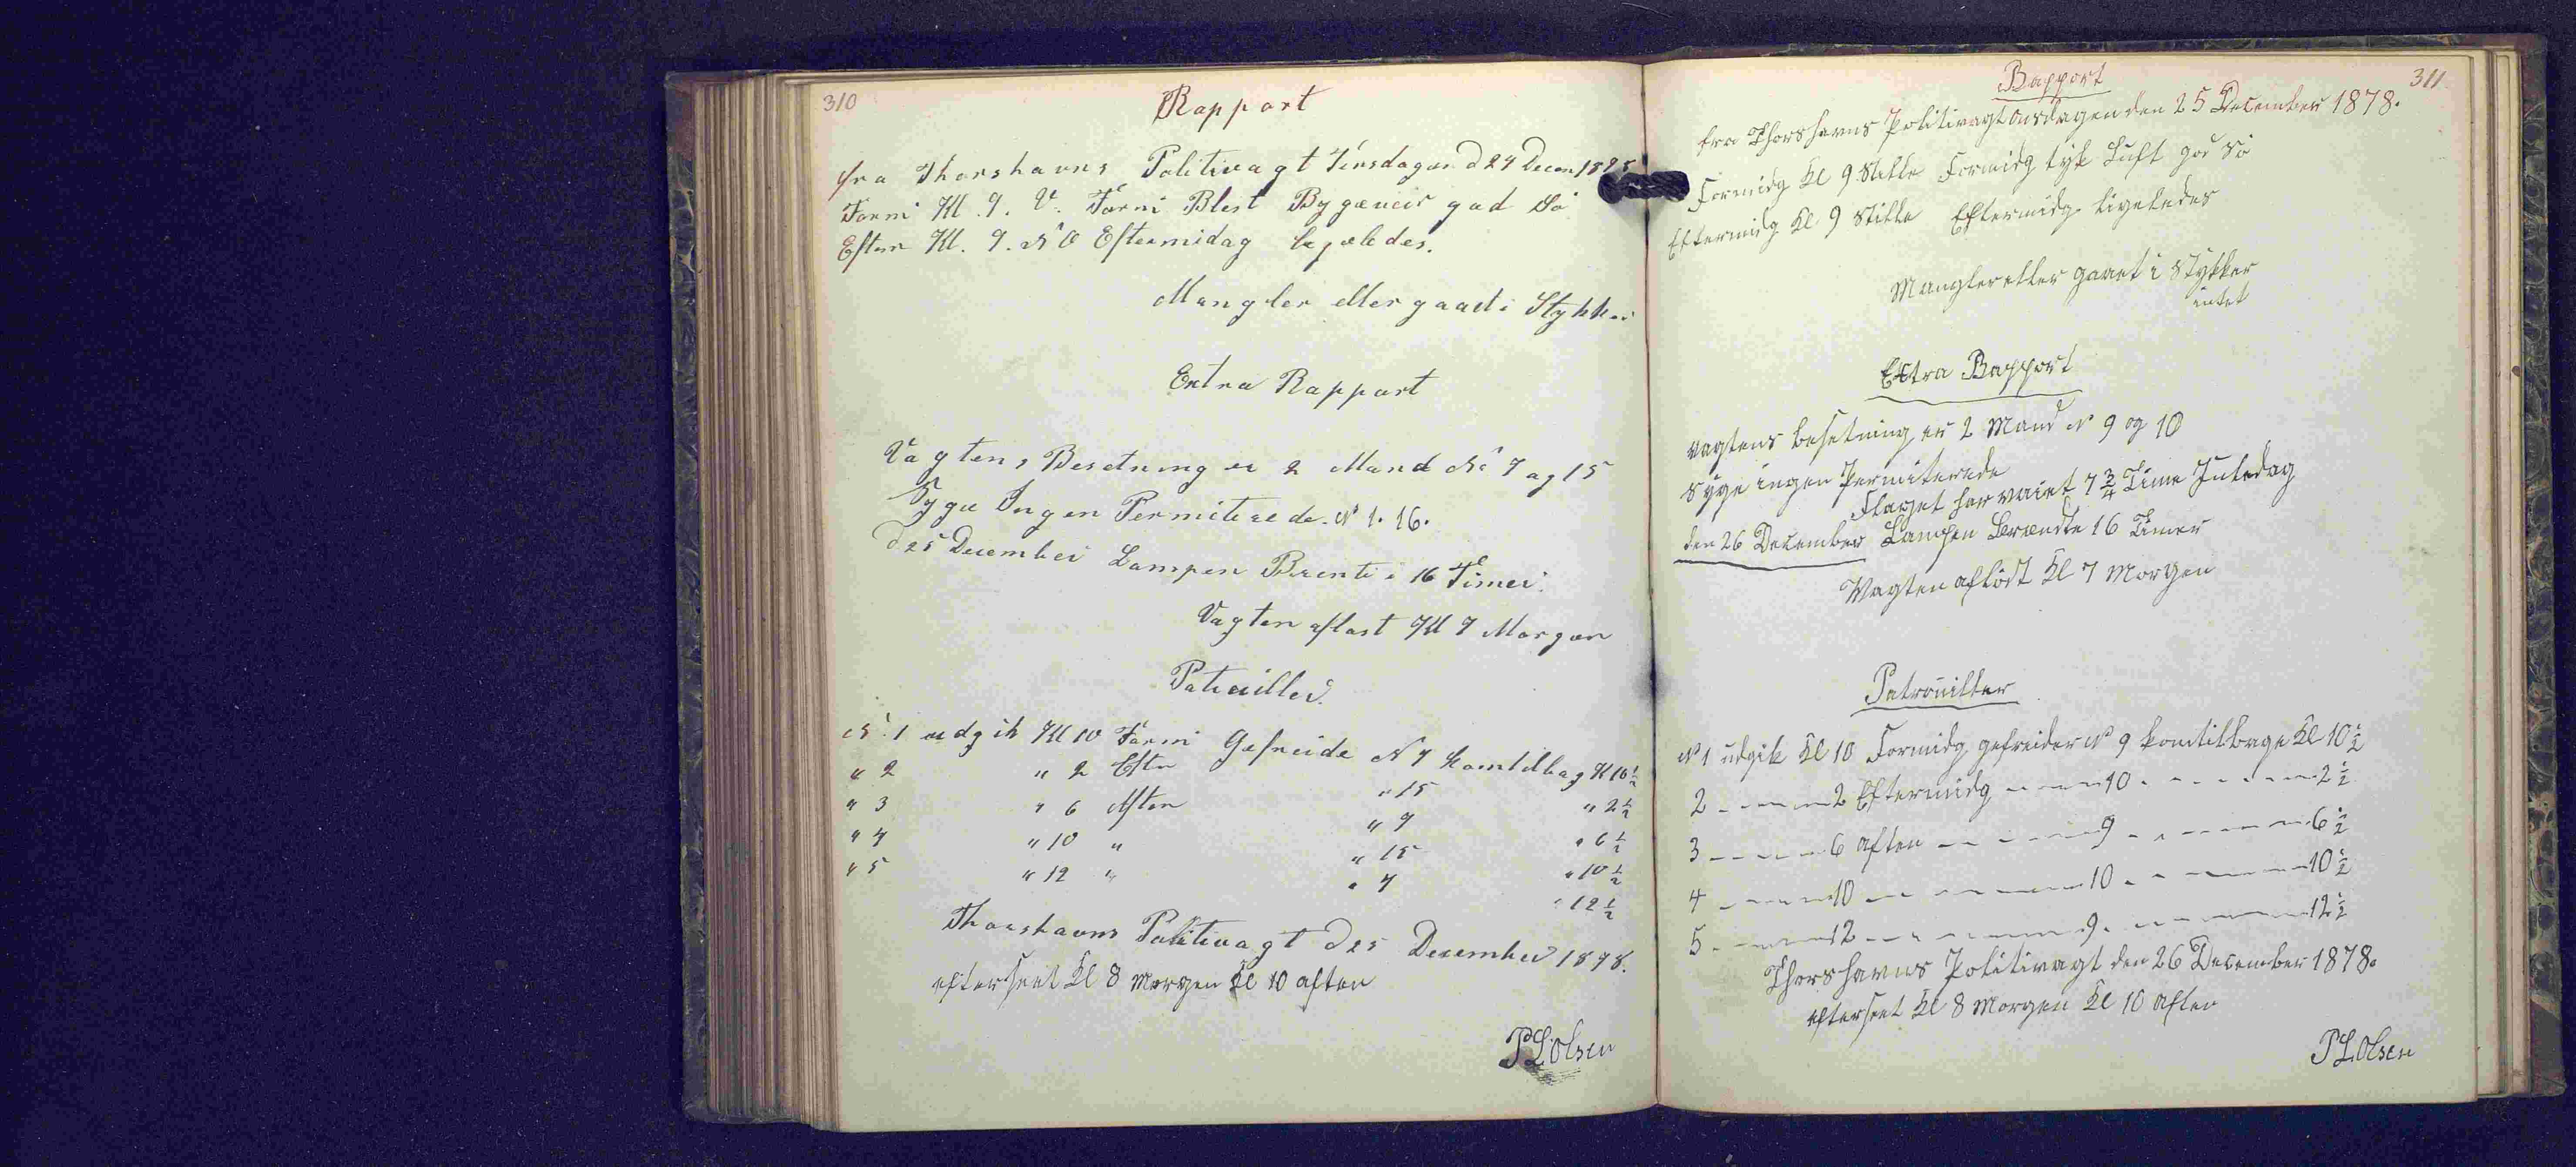 310
Rapport
fra Thorshavns Politivagt Tirsdagen d 24 Decem 1878
Formi Kl. 9. V. Formi Blest Bygæveir god Sö
Efterm Kl. 9. N O Eftermidag ligeledes.
Mangler eller gaaet i Stykker
Extra Rapport
Vagtens Besetning er 2 Mand No 7 og 15
Syge Ingen Permiterede. N 1. 16.
d 25 December Lampen Brente i 16 Timer.
Vagten aflöst Kl 7 Morgen
Patrouiller
N. 1 udgik Kl 10 Formi Gefreide N 7 komtilbag Kl 10 1/2
" 2 " 2 Eftm " 15 " 2 1/2
" 3 " 6 Aften " 7 " 6 1/2
" 4 " 10 " " 15 " 10 1/2
" 5 " 12 " " 7 " 12 1/2
Thorshavns Politivagt d 25 December 1878.
efterseet Kl 8 Morgen Kl 10 aften
PLOlsen
311
Rapport
fra Thorshavns Politivagt Onsdagen den 25 December 1878.
Formidg Kl 9 Stille Formidg tyk Luft god Sö
Eftermidg Kl 9 Stille Eftermidg ligeledes
Mangler eller gaaet i Stykker
intet
Extra Rapport
Vagtens besetning er 2 Mand N 9 og 10
Syge ingen Permiterede
Flaget har vaiet 7 3/4 Time Juledag
den 26 December Lampen Brændte 16 Timer
Vagten aflöst Kl 7 Morgen
Patrouiller
N 1 udgik Kl 10 Formidg gefreider N 9 komtilbage Kl 10 1/2
2 - - - - 2 Eftermidg - - - 10 - - - - - - 2 1/2
3 - - - - 6 aften - - - - 9 - - - - - - 6 1/2
4 - - - - 10 - - - - - - 10 - - - - - - 10 1/2
5 - - - - 12 - - - - - - 9 - - - - - - 12 1/2
Thorshavns Politivagt den 26 December 1878.
efterseet Kl 8 Morgen Kl 10 aften
PLOlsen